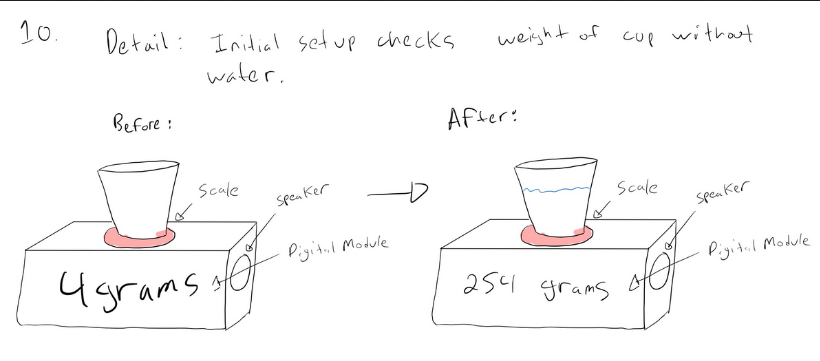 10. Detail: Initial setup checks weight of cup without
water.
Before:
After:
Scale
speaker
Digital Module
4 grams
Scale
speaker
Digital Module
254 grams